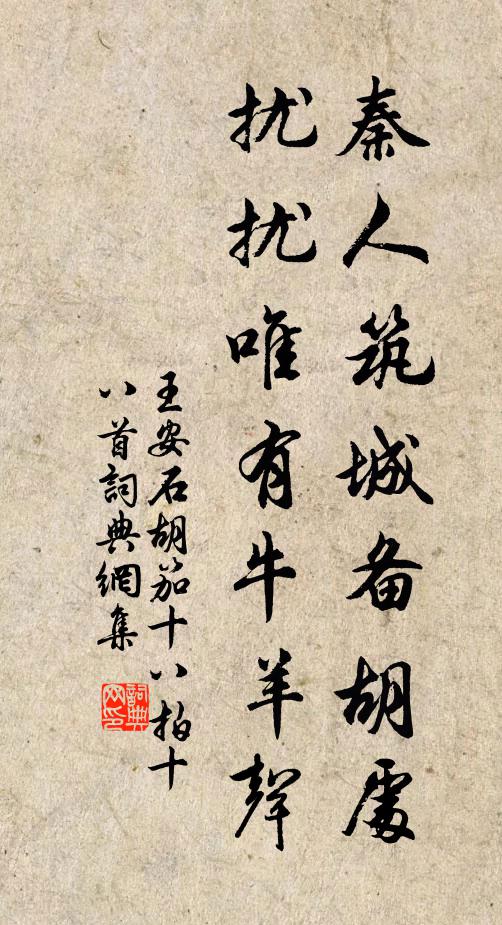 秦人筑城备胡處
扰扰唯有牛羊聲
王安石胡笳十八拍十
八首詞典網集
詞典
网印